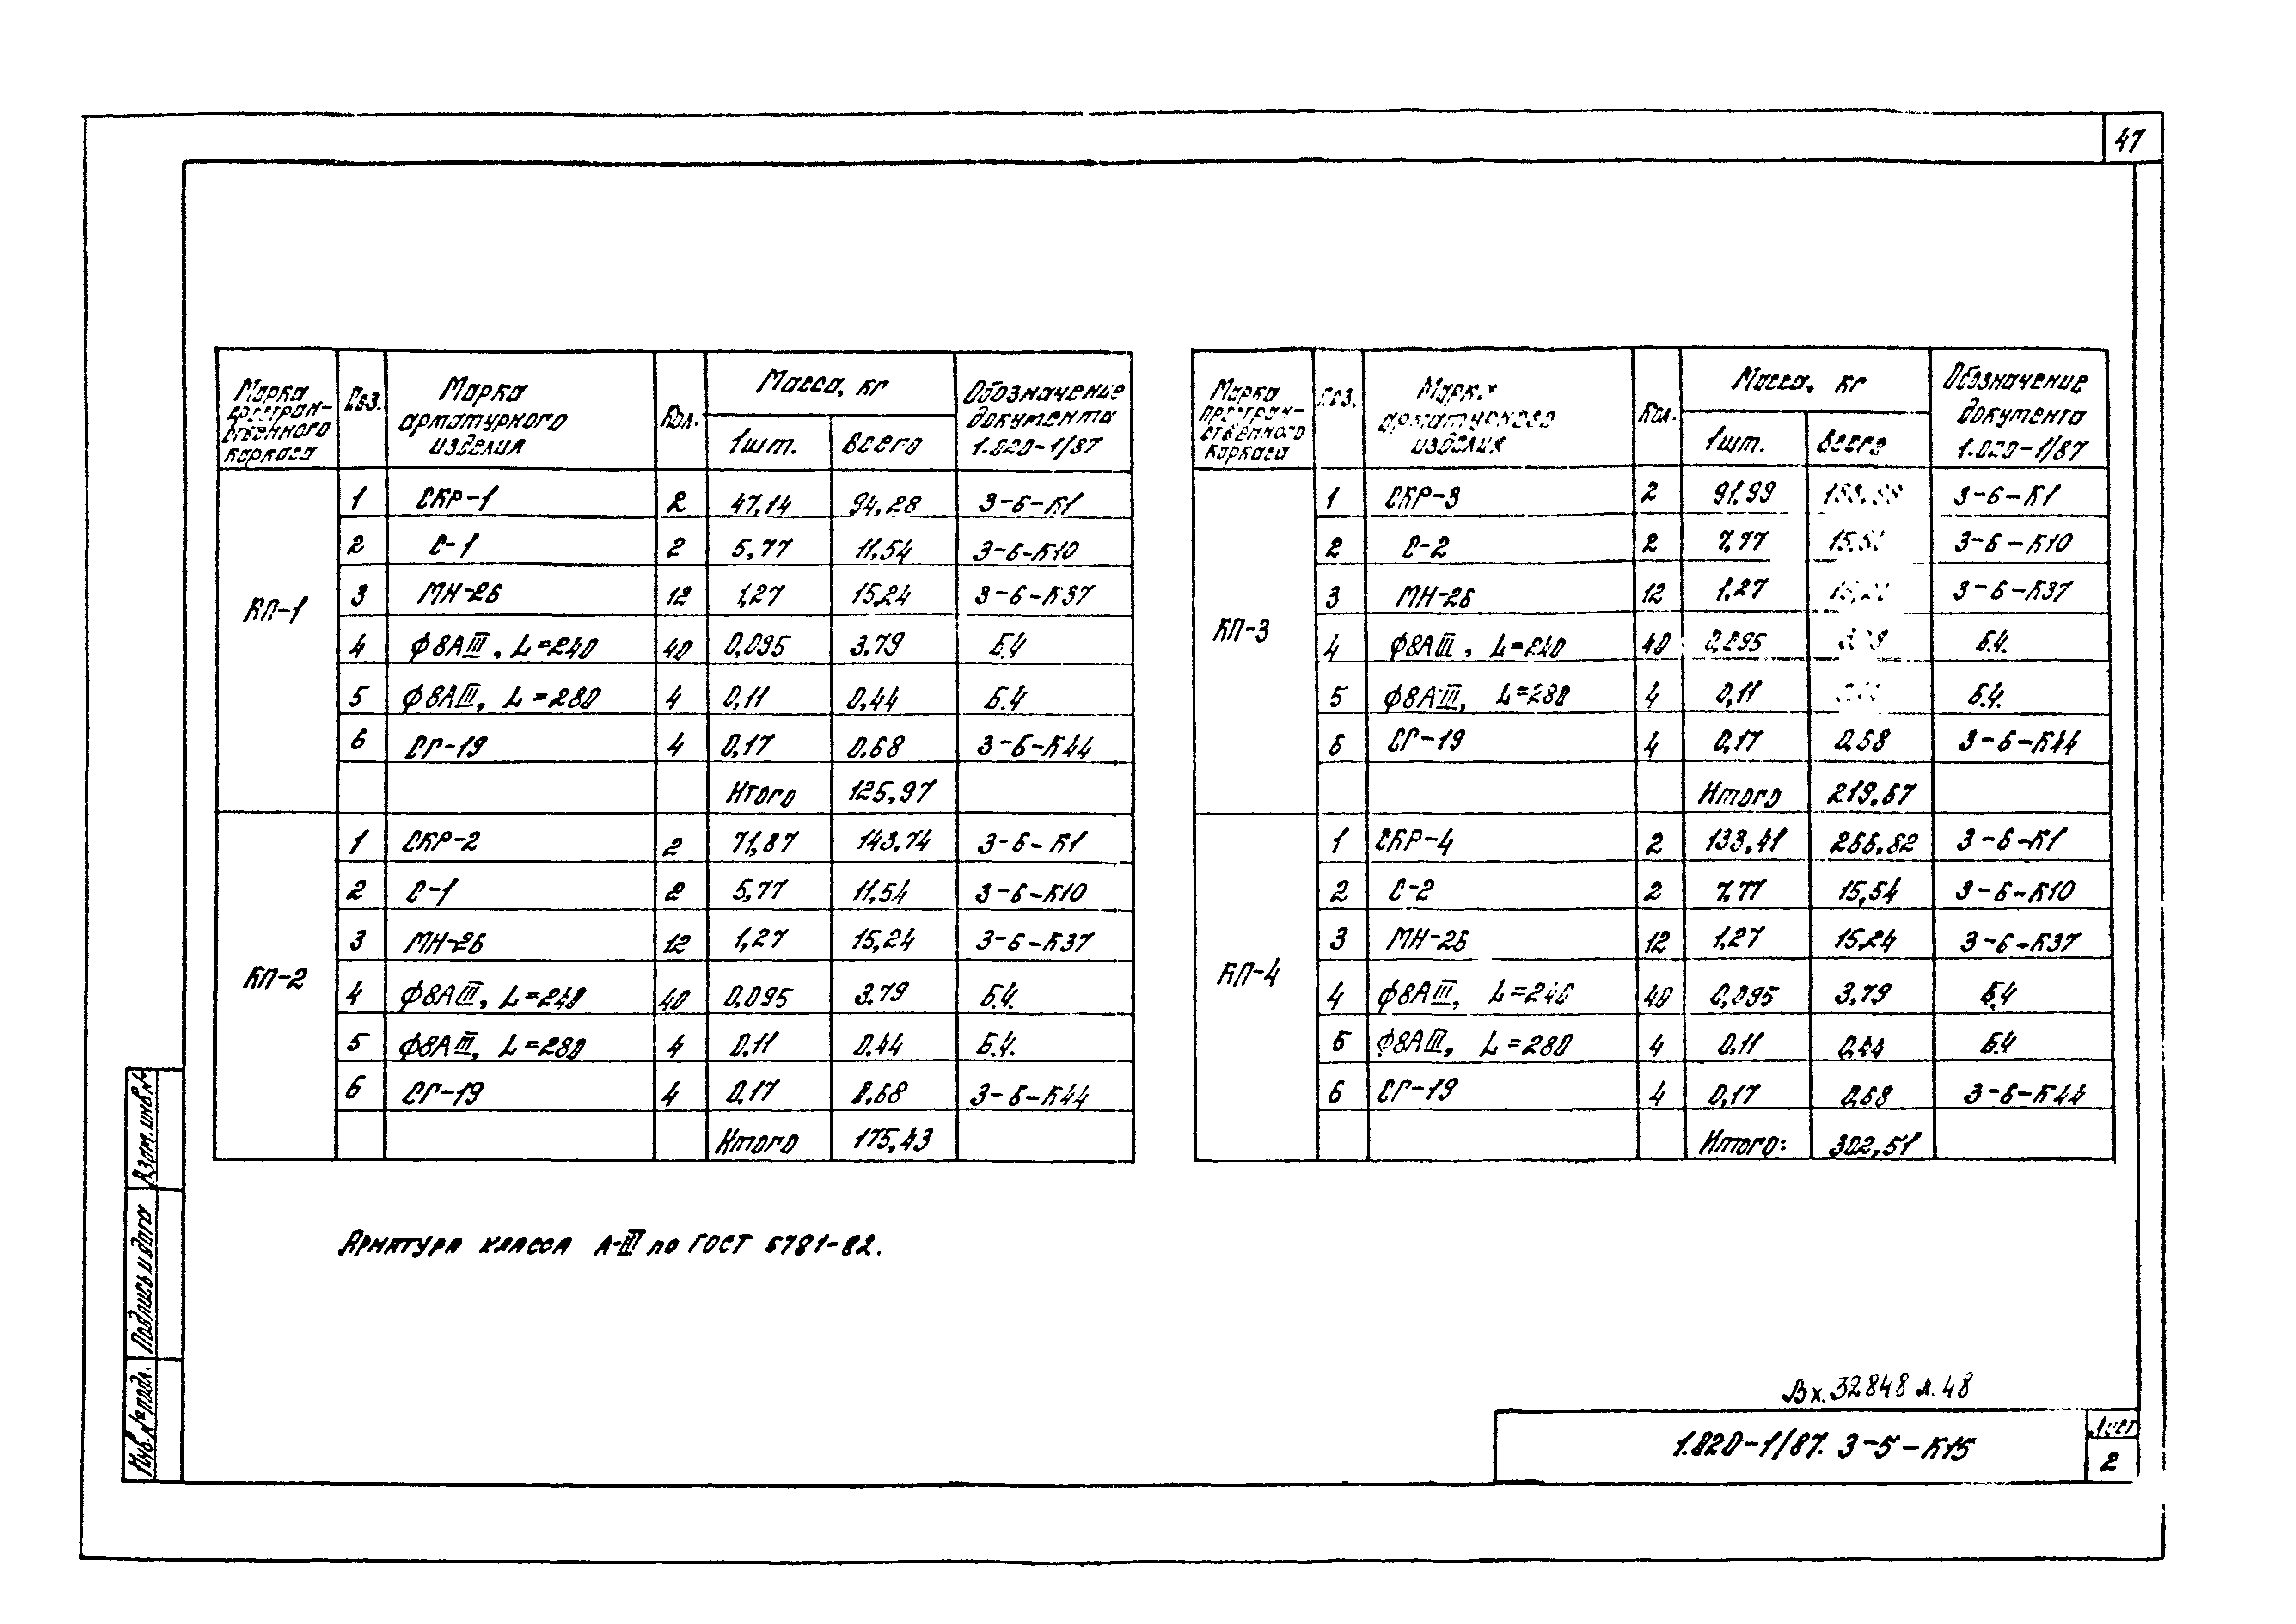 47
Марка пространственного каркаса | Поз. | Марка арматурного изделия | Кол. | Масса, кг 1шт. | Всего | Обозначение документа 1.020-1/87
КП-1
1 СКР-1 2 47,14 94,28 3-6-К1
2 С-1 2 5,77 11,54 3-6-К10
3 МН-26 12 1,27 15,24 3-6-К37
4 ф8АIII, L=240 40 0,095 3.79 Б.Ч
5 ф8АIII, L=280 4 0,11 0,44 Б.Ч
6 СГ-19 4 0,17 0,68 3-6-К44
Итого 125,97
КП-2
1 СКР-2 2 71,87 143,74 3-6-К1
2 С-1 2 5,77 11,54 3-6-К10
3 МН-26 12 1,27 15,24 3-6-К37
4 ф8АIII, L=240 40 0,095 3.79 Б.Ч.
5 ф8АIII, L=280 4 0,11 0,44 Б.Ч.
6 СГ-19 4 0,17 0,68 3-6-К44
Итого 175,43
Марка пространственного каркаса | Поз. | Марка арматурного изделия | Кол. | Масса, кг 1шт. | Всего | Обозначение документа 1.020-1/87
КП-3
1 СКР-3 2 91,99 3-6-К1
2 С-2 2 7,77 3-6-К10
3 МН-26 12 1,27 3-6-К37
4 ф8АIII, L=240 40 0,095 Б.Ч.
5 ф8АIII, L=280 4 0,11 Б.Ч.
6 СГ-19 4 0,17 0,68 3-6-К44
Итого 219,67
КП-4
1 СКР-4 2 133,41 266,82 3-6-К1
2 С-2 2 7,77 15,54 3-6-К10
3 МН-26 12 1,27 15,24 3-6-К37
4 ф8АIII, L=240 40 0,095 3,79 Б.Ч
5 ф8АIII, L=280 4 0.11 0,44 Б.Ч
6 СГ-19 4 0,17 0,68 3-6-К44
Итого: 302,51
Арматура класса А-III по ГОСТ 5781-82.
Вх. 32848 л. 48
1.020-1/87. 3-5-К15
Лист
2
Взам. инв. №
Подпись и дата
Инв. № подл.